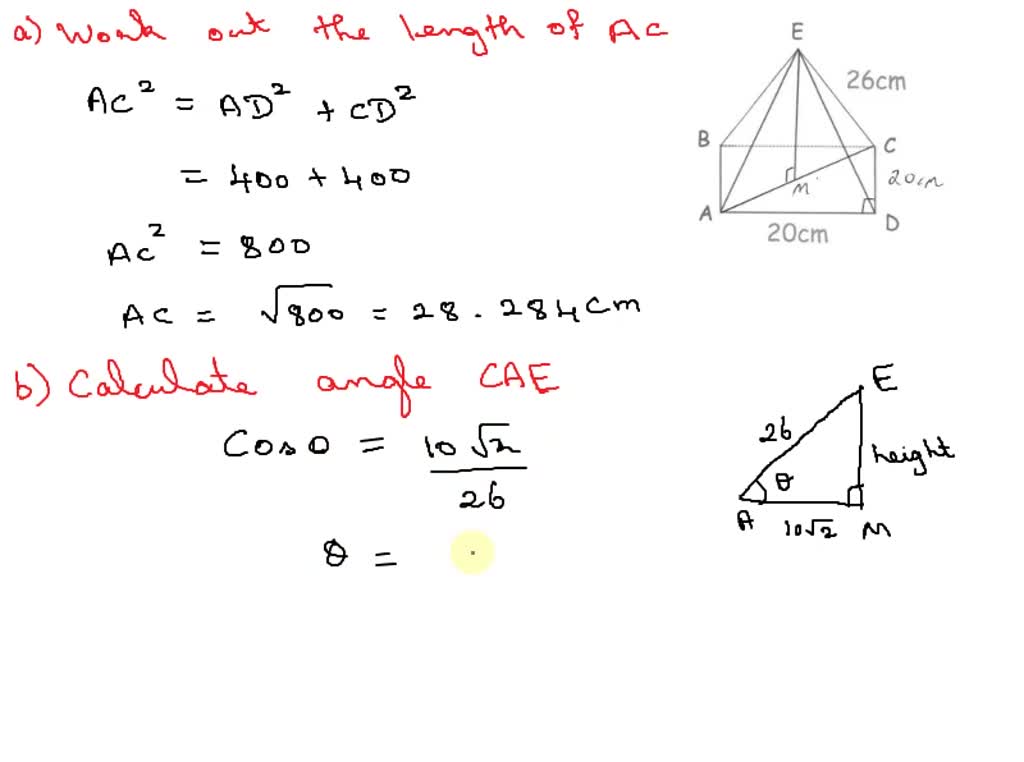 a) Work out the length of AC
AC² = AD² + CD²
= 400 + 400
AC² = 800
AC = √800 = 28.284cm
E
26cm
B
C
20cm
M
A
D
20cm
b) Calculate angle CAE
Cos θ = 10√2
26
θ =
E
26
height
θ
A
10√2
M